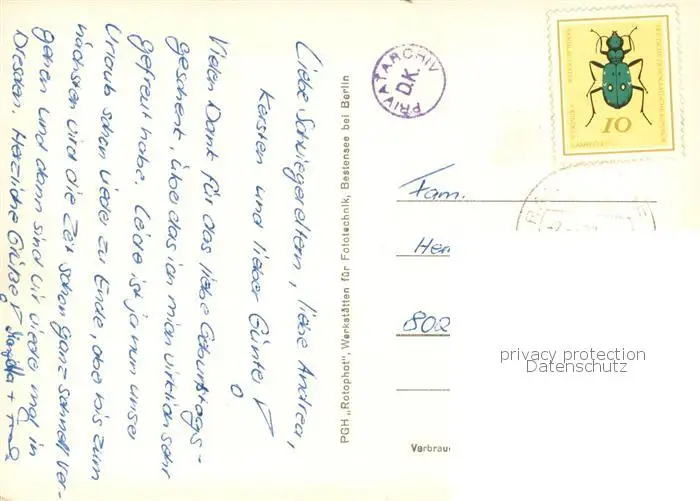 Liebe Schwiegereltern, liebe Andrea,
Kersten und lieber Günter!
Vielen Dank für das liebe Geburtstags-
geschenk, über das ich mich wirklich sehr
gefreut habe. Leider ist ja nun unser
Urlaub schon wieder zu Ende, aber bis zum
nächsten wird die Zeit schon ganz schnell ver-
gehen und dann sind wir wieder mal in
Dresden. Herzliche Grüße!
PGH „Rotophot", Werkstätten für Fototechnik, Bestensee bei Berlin
PRIVATARCHIV
D.K.
10
Fam.
Her
802
privacy protection
Datenschutz
Verbrauc